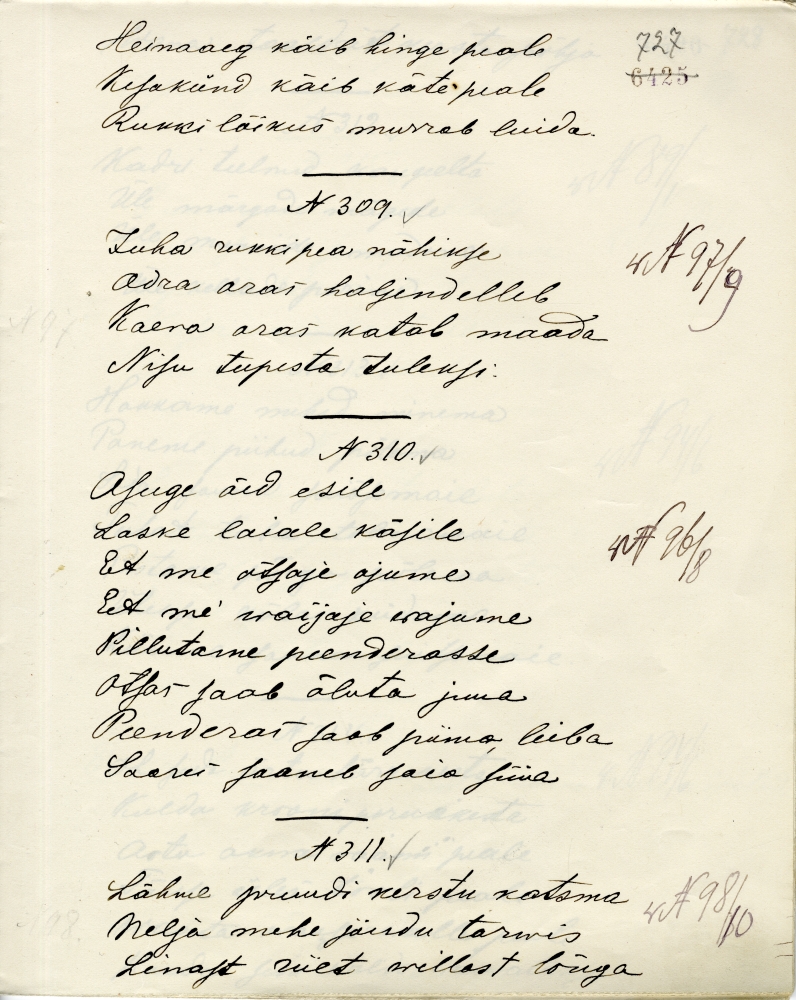 Heinaaeg käib hinge peale
727
Kesakünd käib käte peale
6425
Rukki lõikus murrab luida.
N 309.
Juba rukki pea nähikse
N 97/9
Odra oras haljendelleb
Kaera oras katab maada
Nisu tupesta tuleksi.
N 310.
Astuge õed esile
Laske laiale käsile
N 96/8
Et me otsaje ajume
Et me waijaje wajume
Pillutame peenderasse
Otsas saab õluta juua
Peenderas saab piima, leiba
Saares saaneb saia süüa
N 311.
Lähme pruudi kerstu katsma
N 98/10
Nelja mehe jõudu tarwis
Linast riiet willast lõnga